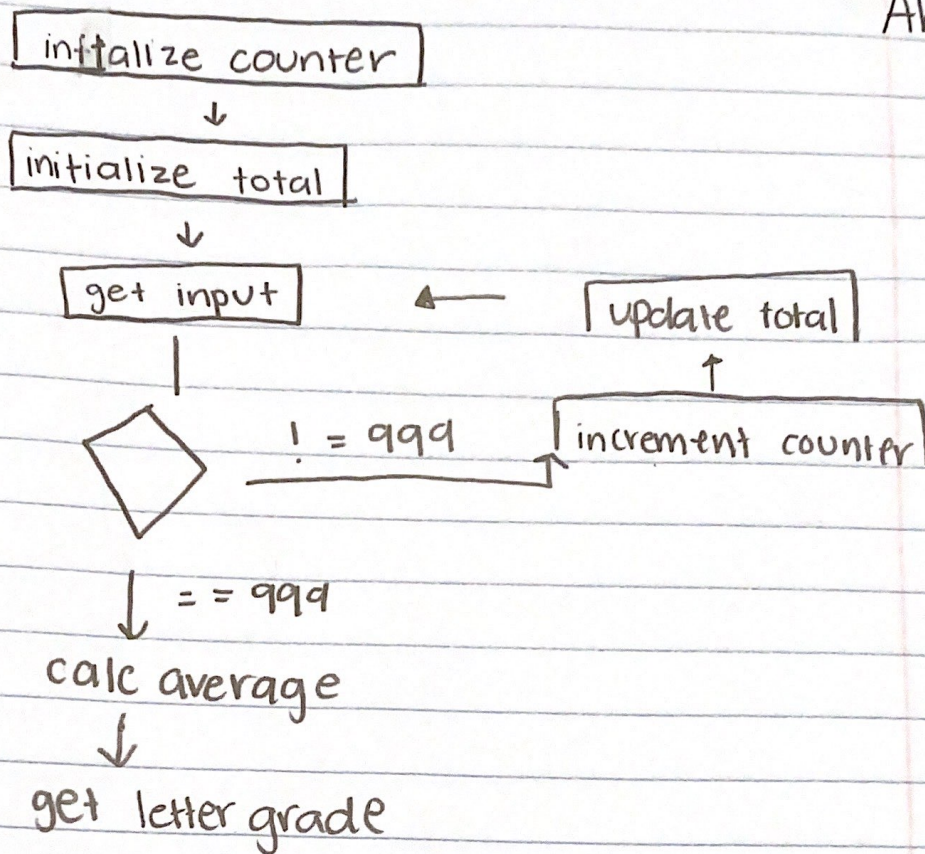 inftalize counter
initialize total
get input
update total
! = 999
increment counter
= = 999
calc average
get letter grade